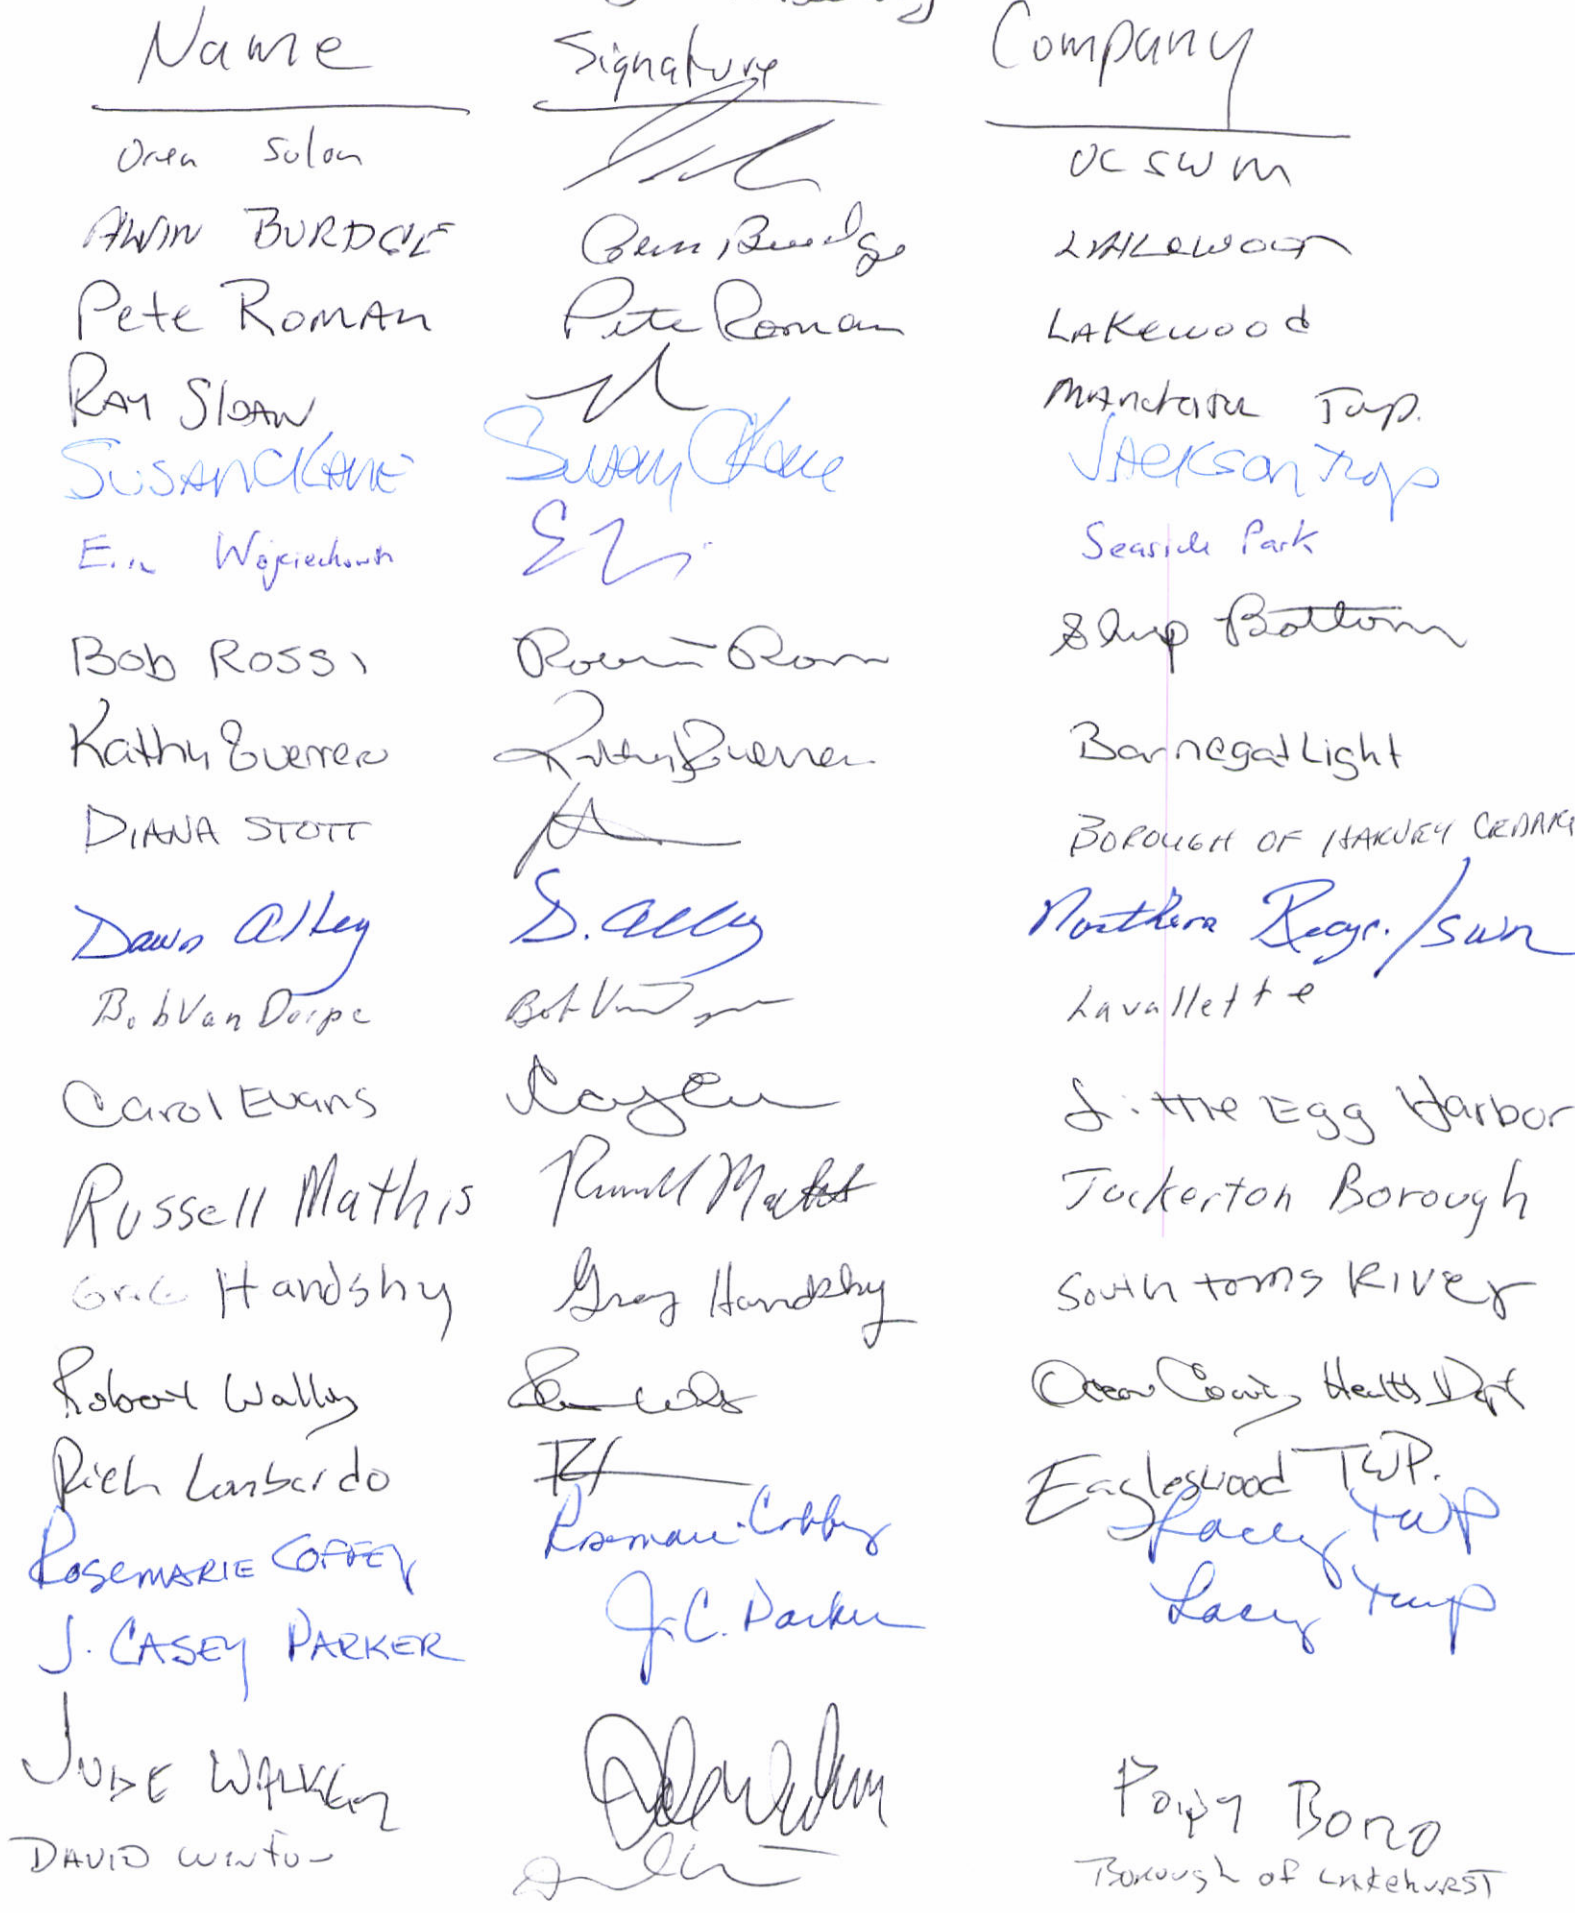 Name Signature Company
Oren Solon OCSWM
ALWIN BURDGE LAKEWOOD
Pete ROMAN Pete Roman LAKEWOOD
RAY SLOAN Twp.
SUSAN C KANE Susan C Kane JACKSON Twp
Wojciechowski Seaside Park
Bob ROSSI Ship Bottom
Kathy Guerrero Kathy Guerrero Barnegat Light
DIANA STOTT BOROUGH OF HARVEY CEDARS
Dawn D. Northern Recyc./SWM
Bob Van Bob Van Lavallette
Carol Evans Little Egg Harbor
Russell Mathis Russell Mathis Tuckerton Borough
Greg Handshy Greg Handshy South toms RIVER
Robert Ocean County Health Dept
Rich Lombardo Eagleswood TWP.
ROSEMARIE COFFEY Rosemarie Coffey Lacey TWP
J. CASEY PARKER J. C. Parker Lacey twp
JUDE WALKER BORO
DAVID WINTON Borough of LAKEHURST